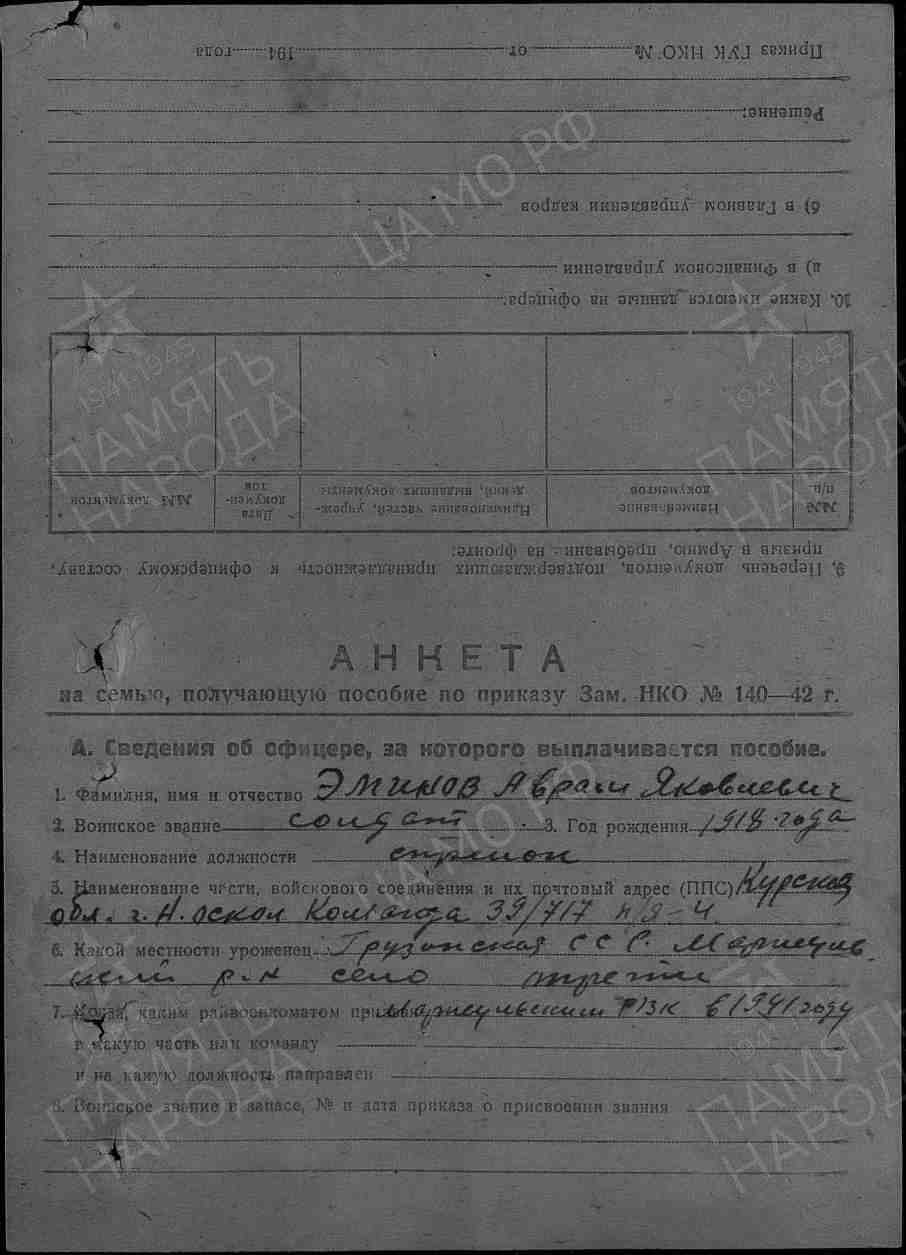 АНКЕТА
на семью, получающую пособие по приказу Зам. НКО № 140—42 г.
А. Сведения об офицере, за которого выплачивается пособие.
1. Фамилия, имя и отчество Эминов Аврам Яковлевич
2. Воинское звание солдат 3. Год рождения 1918 года
4. Наименование должности стрелок
5. Наименование части, войскового соединения и их почтовый адрес (ППС) Курская
обл. г. Н. Оскол Команда 39/717 п/я-4
6. Какой местности уроженец Грузинская ССР. Марнеуль
ский р-н село
7. Когда, каким райвоенкоматом Марнеульским РВК в 1941 году
в какую часть или команду
и на какую должность направлен
8. Воинское звание в запасе, № и дата приказа о присвоении звания
9. Перечень документов, подтверждающих принадлежность к офицерскому составу,
призыв в Армию, пребывание на фронте:
№№ п/п. Наименование документов Наименование частей, учреждений, выдавших документы Дата документов №№ документов
10. Какие имеются данные на офицера:
а) в Финансовом Управлении
б) в Главном управлении кадров
Решение:
Приказ ГУК НКО № от 194 года
ЦА МО РФ
1941-1945
ПАМЯТЬ
НАРОДА
1941-1945
ПАМЯТЬ
НАРОДА
ЦА МО РФ
ПАМЯТЬ
НАРОДА
ПАМЯТЬ
НАРОДА